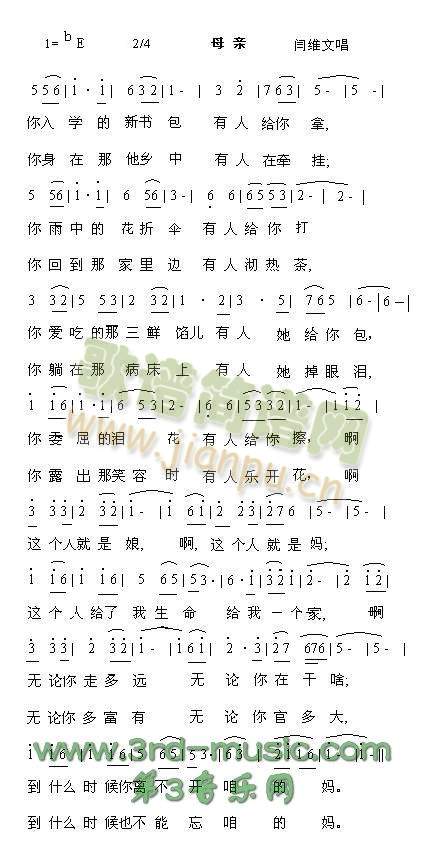 1= bE 2/4 母亲 闫维文唱
5 56|1·1|6 32|1-|3 2|7 63|5-|5-|
你入学的新书包有人给你拿,
你身在那他乡中有人在牵挂;
5 56|1·1|6 56|3-|6 6|65 53|2-|2-|
你雨中的花折伞有人给你打
你回到那家里边有人沏热茶,
3 32|5 53|2 32|1·2|3·5|7 65|6-|6-|
你爱吃的那三鲜馅儿有人她给你包,
你躺在那病床上有人她掉眼泪,
1 16|1·1|6 53|2-|6·6|5332|1-|112|
你委屈的泪花有人给你擦,啊
你露出那笑容时有人乐开花,啊
3 33|2 32|1-|1 61|2·32|276|5-|5-|
这个人就是娘,啊,这个人就是妈;
1 16|1 16|5 65|53·|6·1|321|2-|2 12|
这个人给了我生命给我一个家,啊
3 33|2 32|1-|161|2·3|27 676|5-|5-|
无论你走多远无论你在干啥;
无论你多富有无论你官多大,
www.3rd-music.com
1 16|1 16|5 65|53·|
第3音乐网
到什么时候你离不开咱的妈。
到什么时候也不能忘咱的妈。
歌谱简谱网
www.jianpu.cn